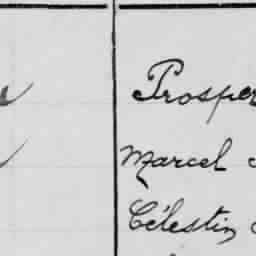 Prosper
Marcel
Célestin